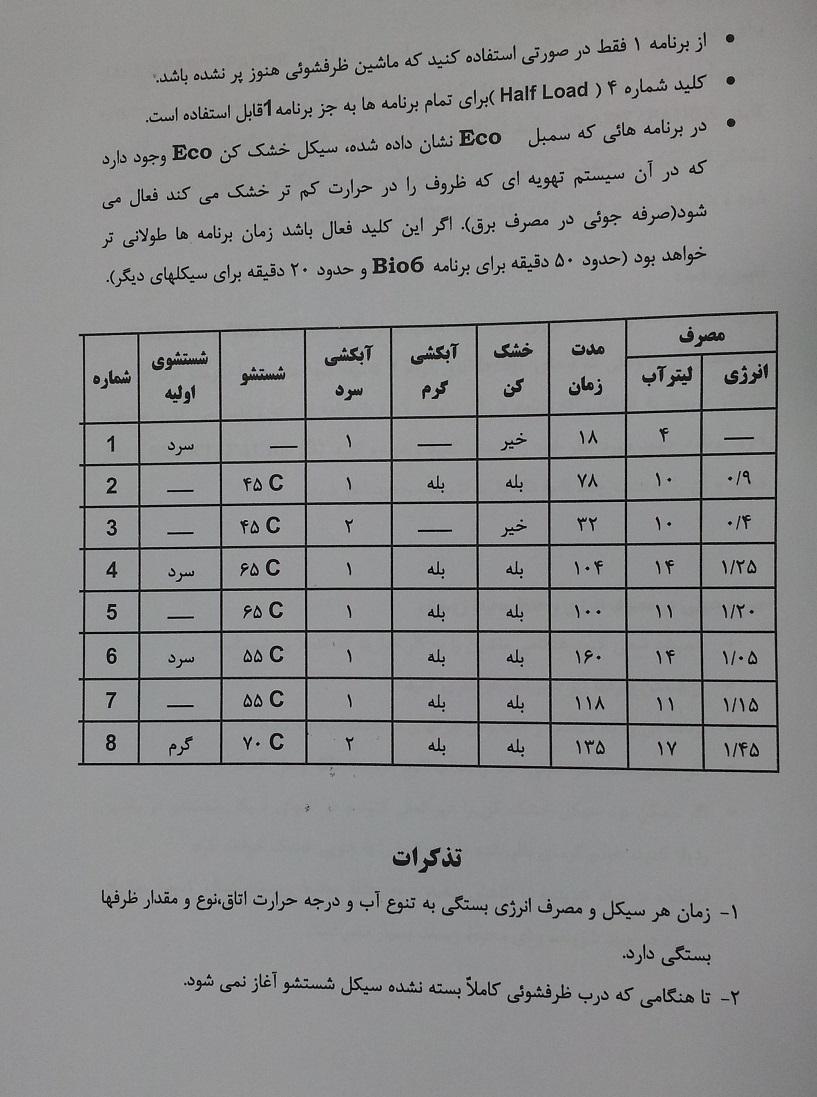 • از برنامه ۱ فقط در صورتی استفاده کنید که ماشین ظرفشوئی هنوز پر نشده باشد.
• کلید شماره ۴ ( Half Load )برای تمام برنامه ها به جز برنامه1قابل استفاده است.
• در برنامه هائی که سمبل Eco نشان داده شده، سیکل خشک کن Eco وجود دارد
که در آن سیستم تهویه ای که ظروف را در حرارت کم تر خشک می کند فعال می
شود(صرفه جوئی در مصرف برق). اگر این کلید فعال باشد زمان برنامه ها طولانی تر
خواهد بود (حدود ۵۰ دقیقه برای برنامه Bio6 و حدود ۲۰ دقیقه برای سیکلهای دیگر).
مصرف | مدت زمان | خشک کن | آبکشی گرم | آبکشی سرد | شستشو | شستشوی اولیه | شماره
انرژی | لیترآب
— | ۴ | ۱۸ | خیر | — | ۱ | — | سرد | 1
۰/۹ | ۱۰ | ۷۸ | بله | بله | ۱ | ۴۵ C | — | 2
۰/۴ | ۱۰ | ۳۲ | خیر | — | ۲ | ۴۵ C | — | 3
۱/۲۵ | ۱۴ | ۱۰۴ | بله | بله | ۱ | ۶۵ C | سرد | 4
۱/۲۰ | ۱۱ | ۱۰۰ | بله | بله | ۱ | ۶۵ C | — | 5
۱/۰۵ | ۱۴ | ۱۶۰ | بله | بله | ۱ | ۵۵ C | سرد | 6
۱/۱۵ | ۱۱ | ۱۱۸ | بله | بله | ۱ | ۵۵ C | — | 7
۱/۴۵ | ۱۷ | ۱۳۵ | بله | بله | ۲ | ۷۰ C | گرم | 8
تذکرات
۱- زمان هر سیکل و مصرف انرژی بستگی به تنوع آب و درجه حرارت اتاق،نوع و مقدار ظرفها
بستگی دارد.
۲- تا هنگامی که درب ظرفشوئی کاملاً بسته نشده سیکل شستشو آغاز نمی شود.